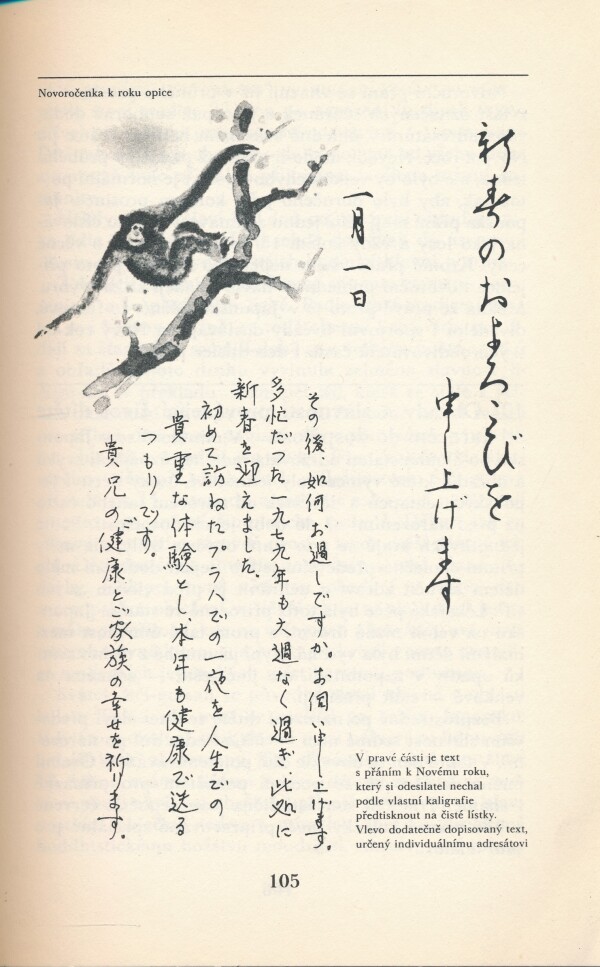 Novoročenka k roku opice
新春のおよろこびを
申上げます
一月一日
その後如何お過しですか。お伺い申し上げます。
多忙だった一九七九年も大過なく過ぎ、此処に
新春を迎えました。
初めて訪ねたプラハでの一夜を人生での
貴重な体験とし、本年も健康で送る
つもりです。
貴兄のご健康とご家族の幸せを祈ります。
V pravé části je text
s přáním k Novému roku,
který si odesilatel nechal
podle vlastní kaligrafie
předtisknout na čisté lístky.
Vlevo dodatečně dopisovaný text,
určený individuálnímu adresátovi
105